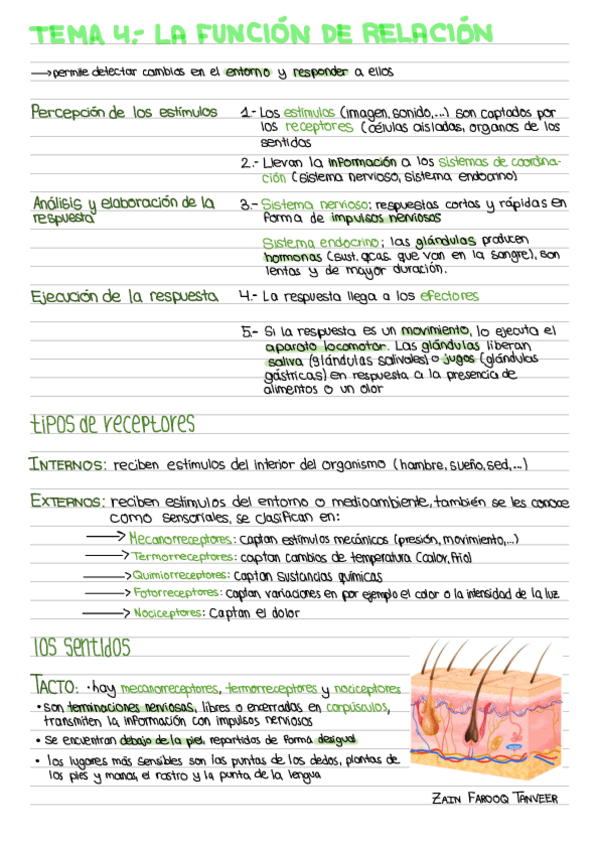 TEMA 4.- LA FUNCIÓN DE RELACIÓN
→permite detectar cambios en el entorno y responder a ellos
Percepción de los estímulos
1.- Los estímulos (imagen, sonido,...) son captados por
los receptores (células aisladas, organos de los
sentidos
2.- Llevan la información a los sistemas de coordina-
ción (sistema nervioso, sistema endocrino)
Análisis y elaboración de la
respuesta
3.- Sistema nervioso: respuestas cortas y rápidas en
forma de impulsos nerviosos
Sistema endocrino: las glándulas producen
hormonas (sust. qcas. que van en la sangre), son
lentas y de mayor duración.
Ejecución de la respuesta
4.- La respuesta llega a los efectores
5.- Si la respuesta es un movimiento, lo ejecuta el
aparato locomotor. Las glándulas liberan
saliva (glándulas salivales) o jugos (glándulas
gástricas) en respuesta a la presencia de
alimentos o un olor
tipos de receptores
INTERNOS: reciben estímulos del interior del organismo (hambre, sueño, sed,...)
EXTERNOS: reciben estímulos del entorno o medioambiente, también se les conoce
como sensoriales, se clasifican en:
→ Mecanorreceptores: captan estímulos mecánicos (presión, movimiento,...)
→ Termorreceptores: captan cambios de temperatura (calor, frío)
→ Quimiorreceptores: captan sustancias químicas
→ Fotorreceptores: captan variaciones en por ejemplo el color o la intensidad de la luz
→ Nociceptores: captan el dolor
los sentidos
TACTO: • hay mecanorreceptores, termorreceptores y nociceptores
• son terminaciones nerviosas, libres o encerradas en corpúsculos,
transmiten la información con impulsos nerviosos
• se encuentran debajo de la piel, repartidos de forma desigual
• los lugares más sensibles son las puntas de los dedos, plantas de
los pies y manos, el rostro y la punta de la lengua
ZAIN FAROOQ TANVEER